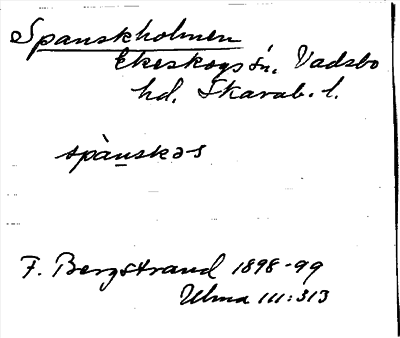 Spanskholmen
Ekeskogs sn. Vadsbo
hd. Skarab. l.
spànskəs
F. Bergstrand 1898-99
Ulma 111:313